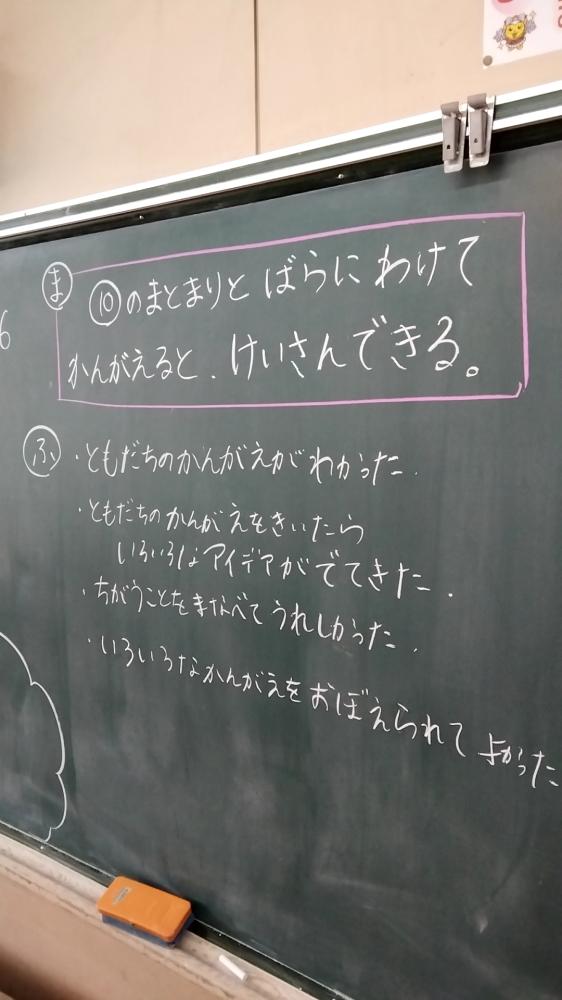 ま
⑩のまとまりと ばらに わけて
かんがえると、けいさんできる。
6
ふ
・ともだちのかんがえが わかった.
・ともだちの かんがえをきいたら
いろいろなアイデアがでてきた.
・ちがうことをまなべて うれしかった.
・いろいろなかんがえを おぼえられて よかった